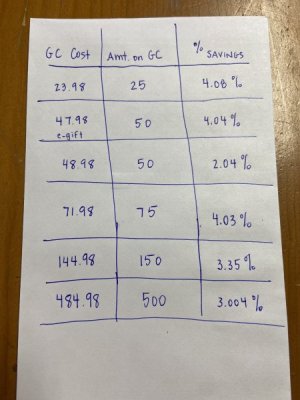 GC Cost Amt. on GC % SAVINGS
23.98 25 4.08 %
47.98 50 4.04 %
e-gift
48.98 50 2.04 %
71.98 75 4.03 %
144.98 150 3.35 %
484.98 500 3.004 %